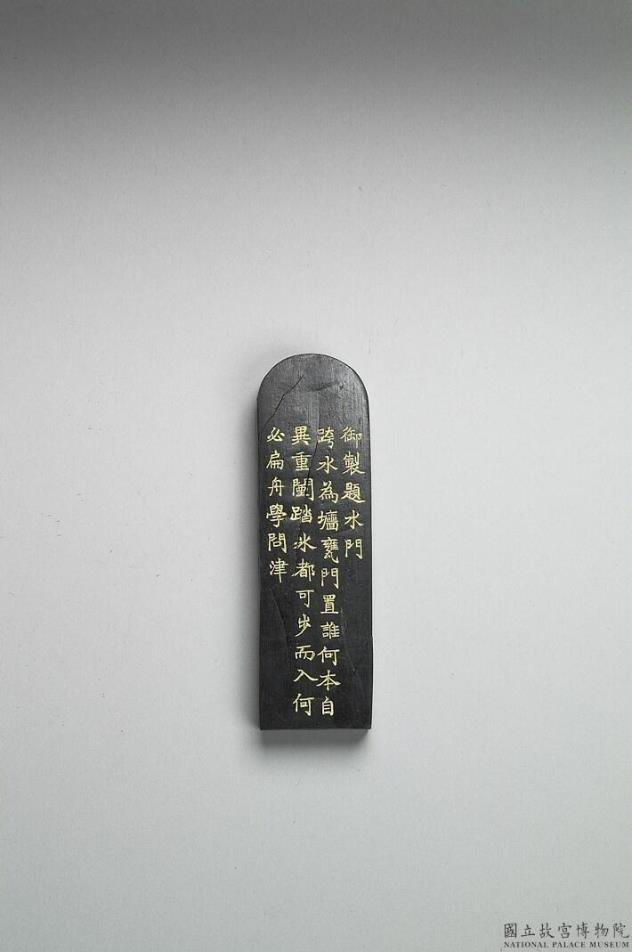 御製題水門
跨水為墻甕門置誰何本自
異重闉踏冰都可步而入何
必扁舟學問津
國立故宮博物院
NATIONAL PALACE MUSEUM